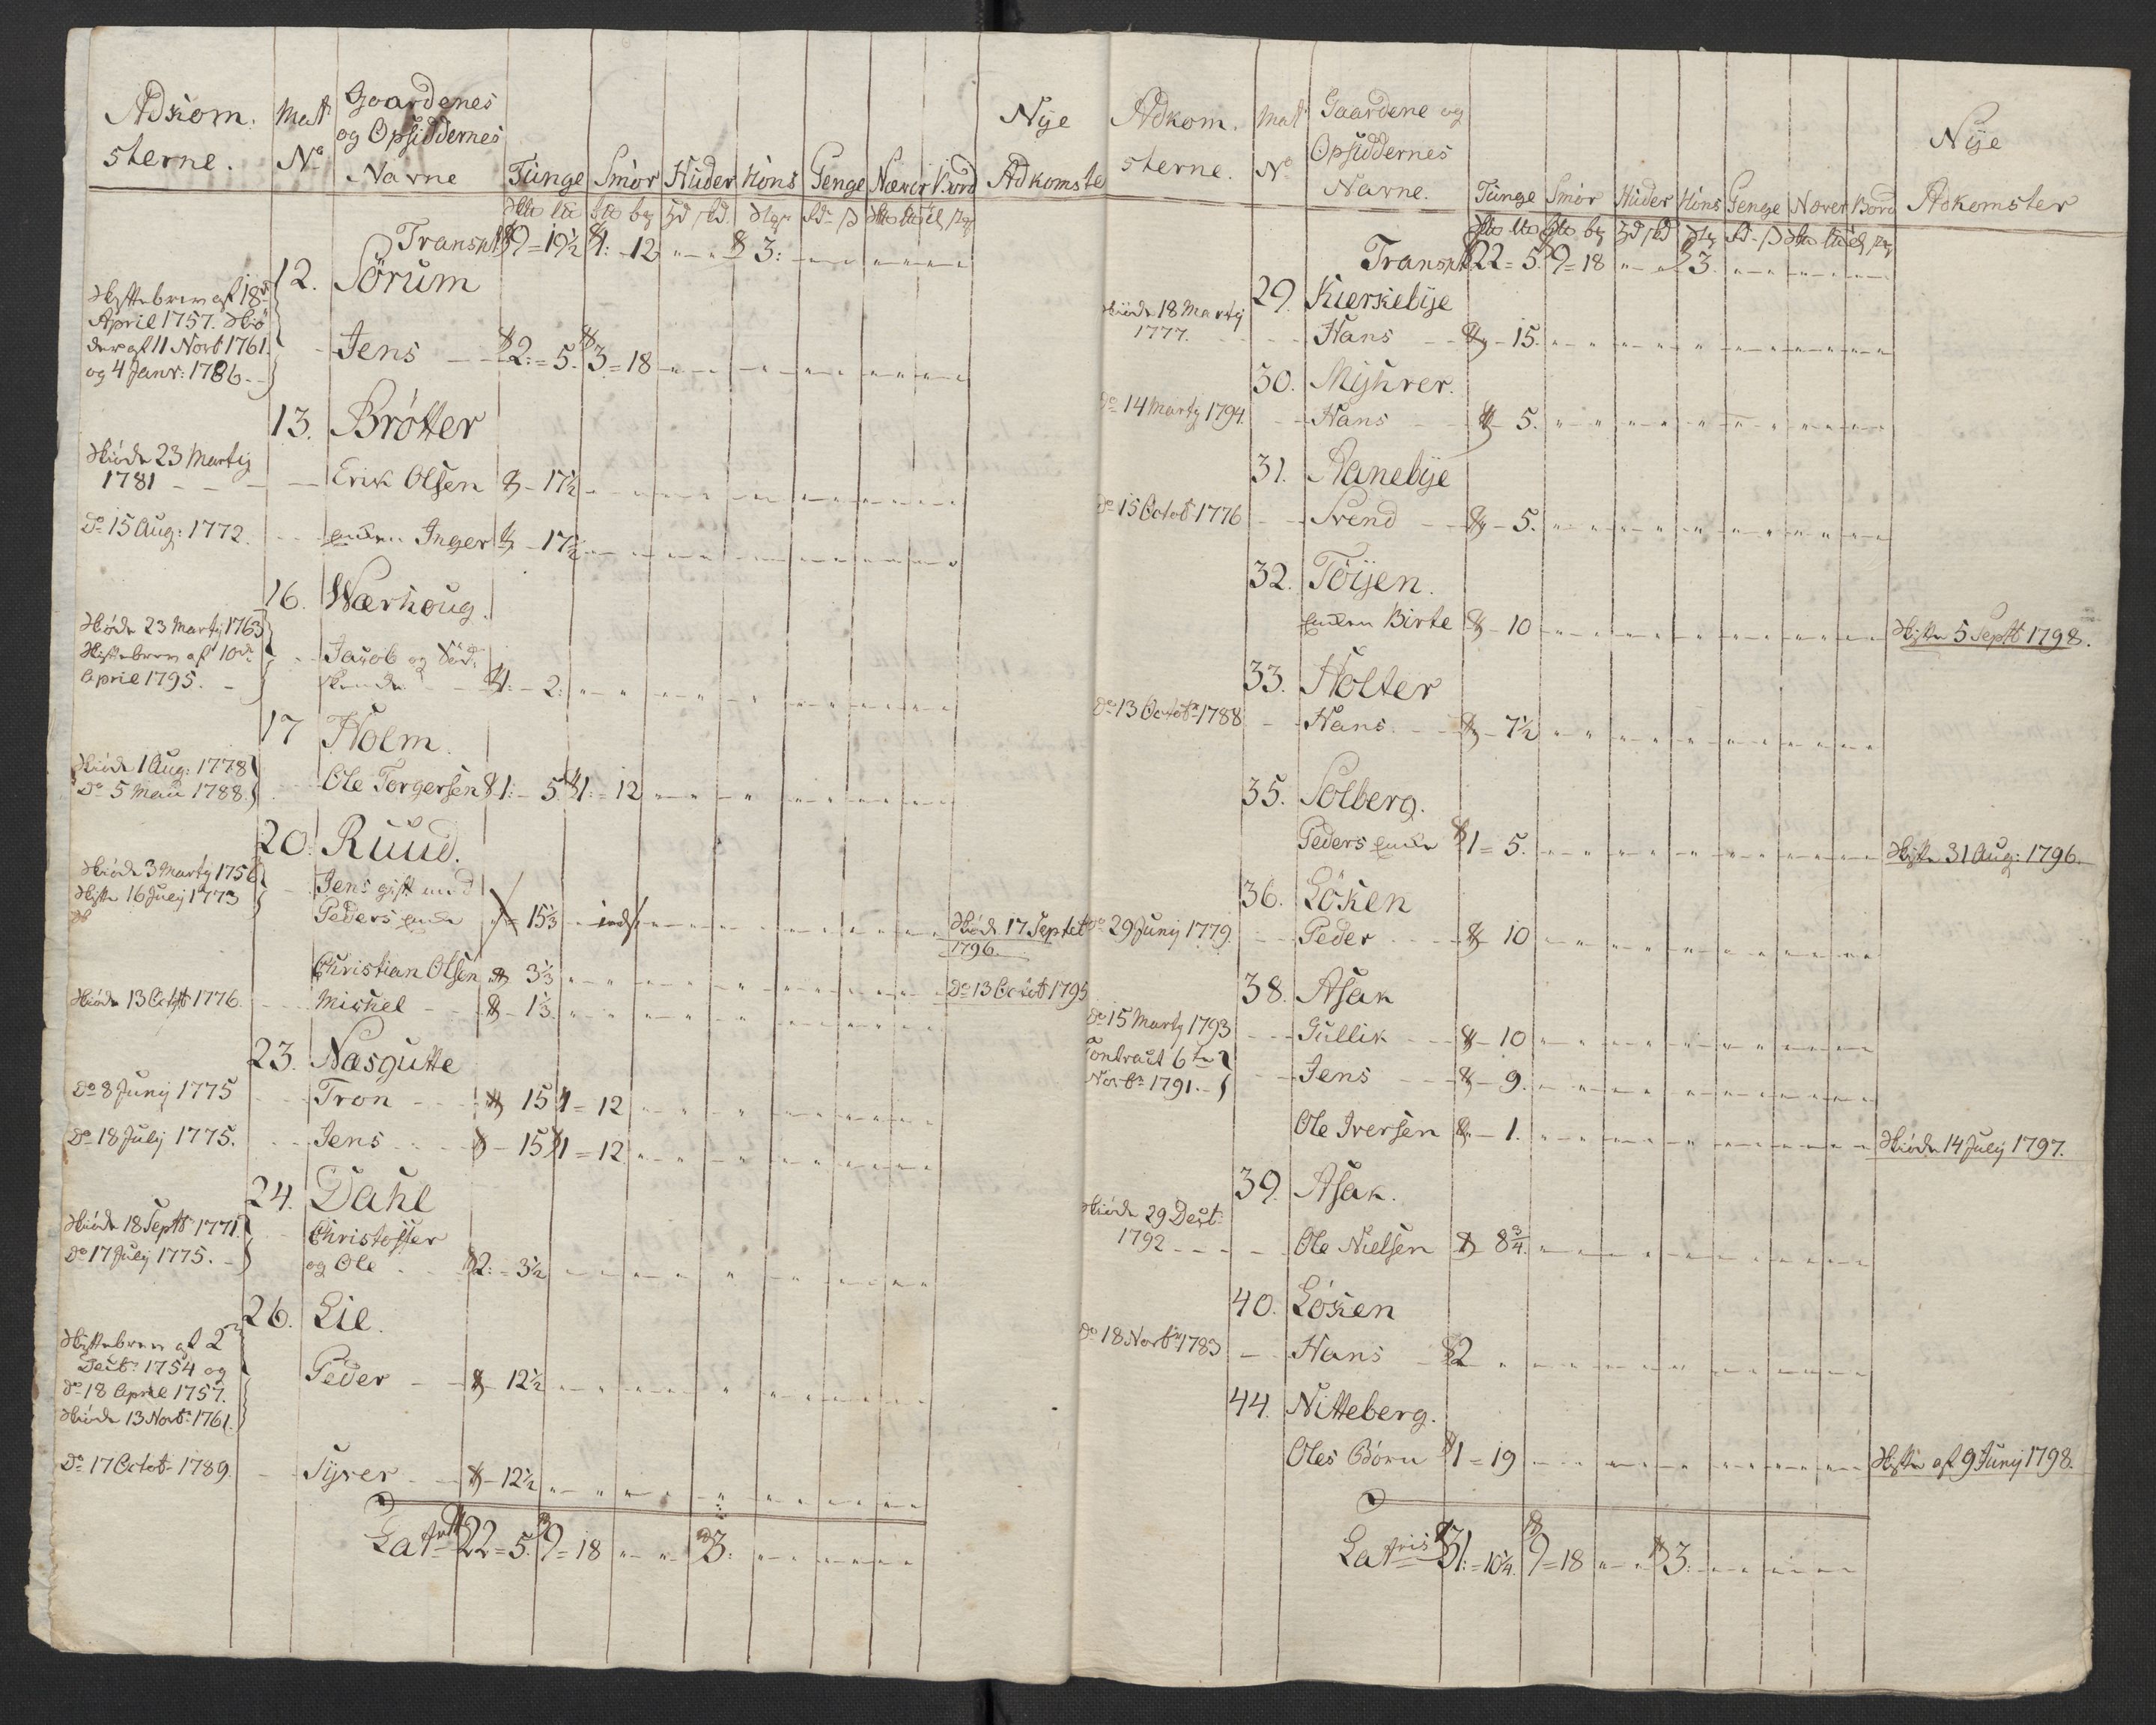 Adkom.
sterne.
Matr
No
Gaardenes
og Opsiddernes
Navne
Tunge Smör Huder Höns Penge Næver Bord
Nye
Adkomste
Transpt 9 = 19½ 4: - 12 " " 3:
12. Sörum
Skiftebrev af 18de
April 1757. Skiö
der af 11 Novb 1761.
og 4 Janv: 1786.
Jens 2: = 5. 3 = 18
13. Brötter
Skiöde 23 Martij
1781 Erik Olsen - 17½
Do 15 Aug: 1772. Enken Inger - 17½
16. Wærhoug.
Skiöde 23 Martij 1763
Skiftebrev af 10de
April 1795.
Jacob og Söd-
skende 4: - 2:
17 Holm.
Skiöde 1 Aug: 1778
Do 5 Maii 1788.
Ole Torgersen 1: - 5. 1: = 12
20. Ruud.
Skiöde 3 Martij 1756
Skifte 16 Julij 1773
Jens gift med
Peders Enke = 15⅓ Skiöde 17 Septbr
1796.
Christian Olsen 3⅓ Do 13 Octob 1795
Skiöde 13 Octob 1776. Mickel - 1⅓
23. Næsgutte
Do 8 Junij 1775 Tron 15 1 = 12
Do 18 Julij 1775. Jens - 15 1 = 12
24. Dahl
Skiöde 18 Septb 1771.
Do 17 Julij 1775.
Christoffer
og Ole 2: = 3½
26. Lie.
Skiftebrev af 2
Decbr 1754 og
Do 18 April 1757.
Skiöde 13 Novbr 1761.
Peder - 12½
Do 17 Octob 1789. Syver - 12½
Latr 22 = 5. 9 = 18 " " 3:
Adkom.
sterne.
Matr
No
Gaardene og
Opsiddernes
Navne.
Tunge Smör Huder Höns Penge Næver Bord
Nye
Adkomster
Transpt 22 = 5. 9 = 18 " " 3.
29. Kierkebye
Skiöde 18 Martij
1777. Hans - 15.
30. Myhrer.
Do 14 Martij 1794. Hans - 5.
31. Aanebye
Do 15 Octob 1776 Svend - 5.
32. Töyen.
Enken Birte - 10 Skifte 5 Septb 1798.
33. Holter
Do 13 Octobr 1788 Hans. - 7½
35. Solberg.
Peders Enke 1 = 5. Skifte 31 Aug: 1796.
36. Löken
Do 29 Junij 1779. Peder - 10
38. Asak
Do 15 Martij 1793 Gullik - 10
Contract 6te
Novbr 1791.
Jens - 9.
Ole Iversen - 1. Skiöde 14 Julij 1797.
39. Asak.
Skiöde 29 Decbr
1792 Ole Nielsen 8¾.
40. Löken
Do 18 Novbr 1783 Hans 2
44. Nitteberg.
Oles Börn 1 = 19 Skifte af 9 Junij 1798.
Latris 31: = 10¼. 9 = 18 " " 3: